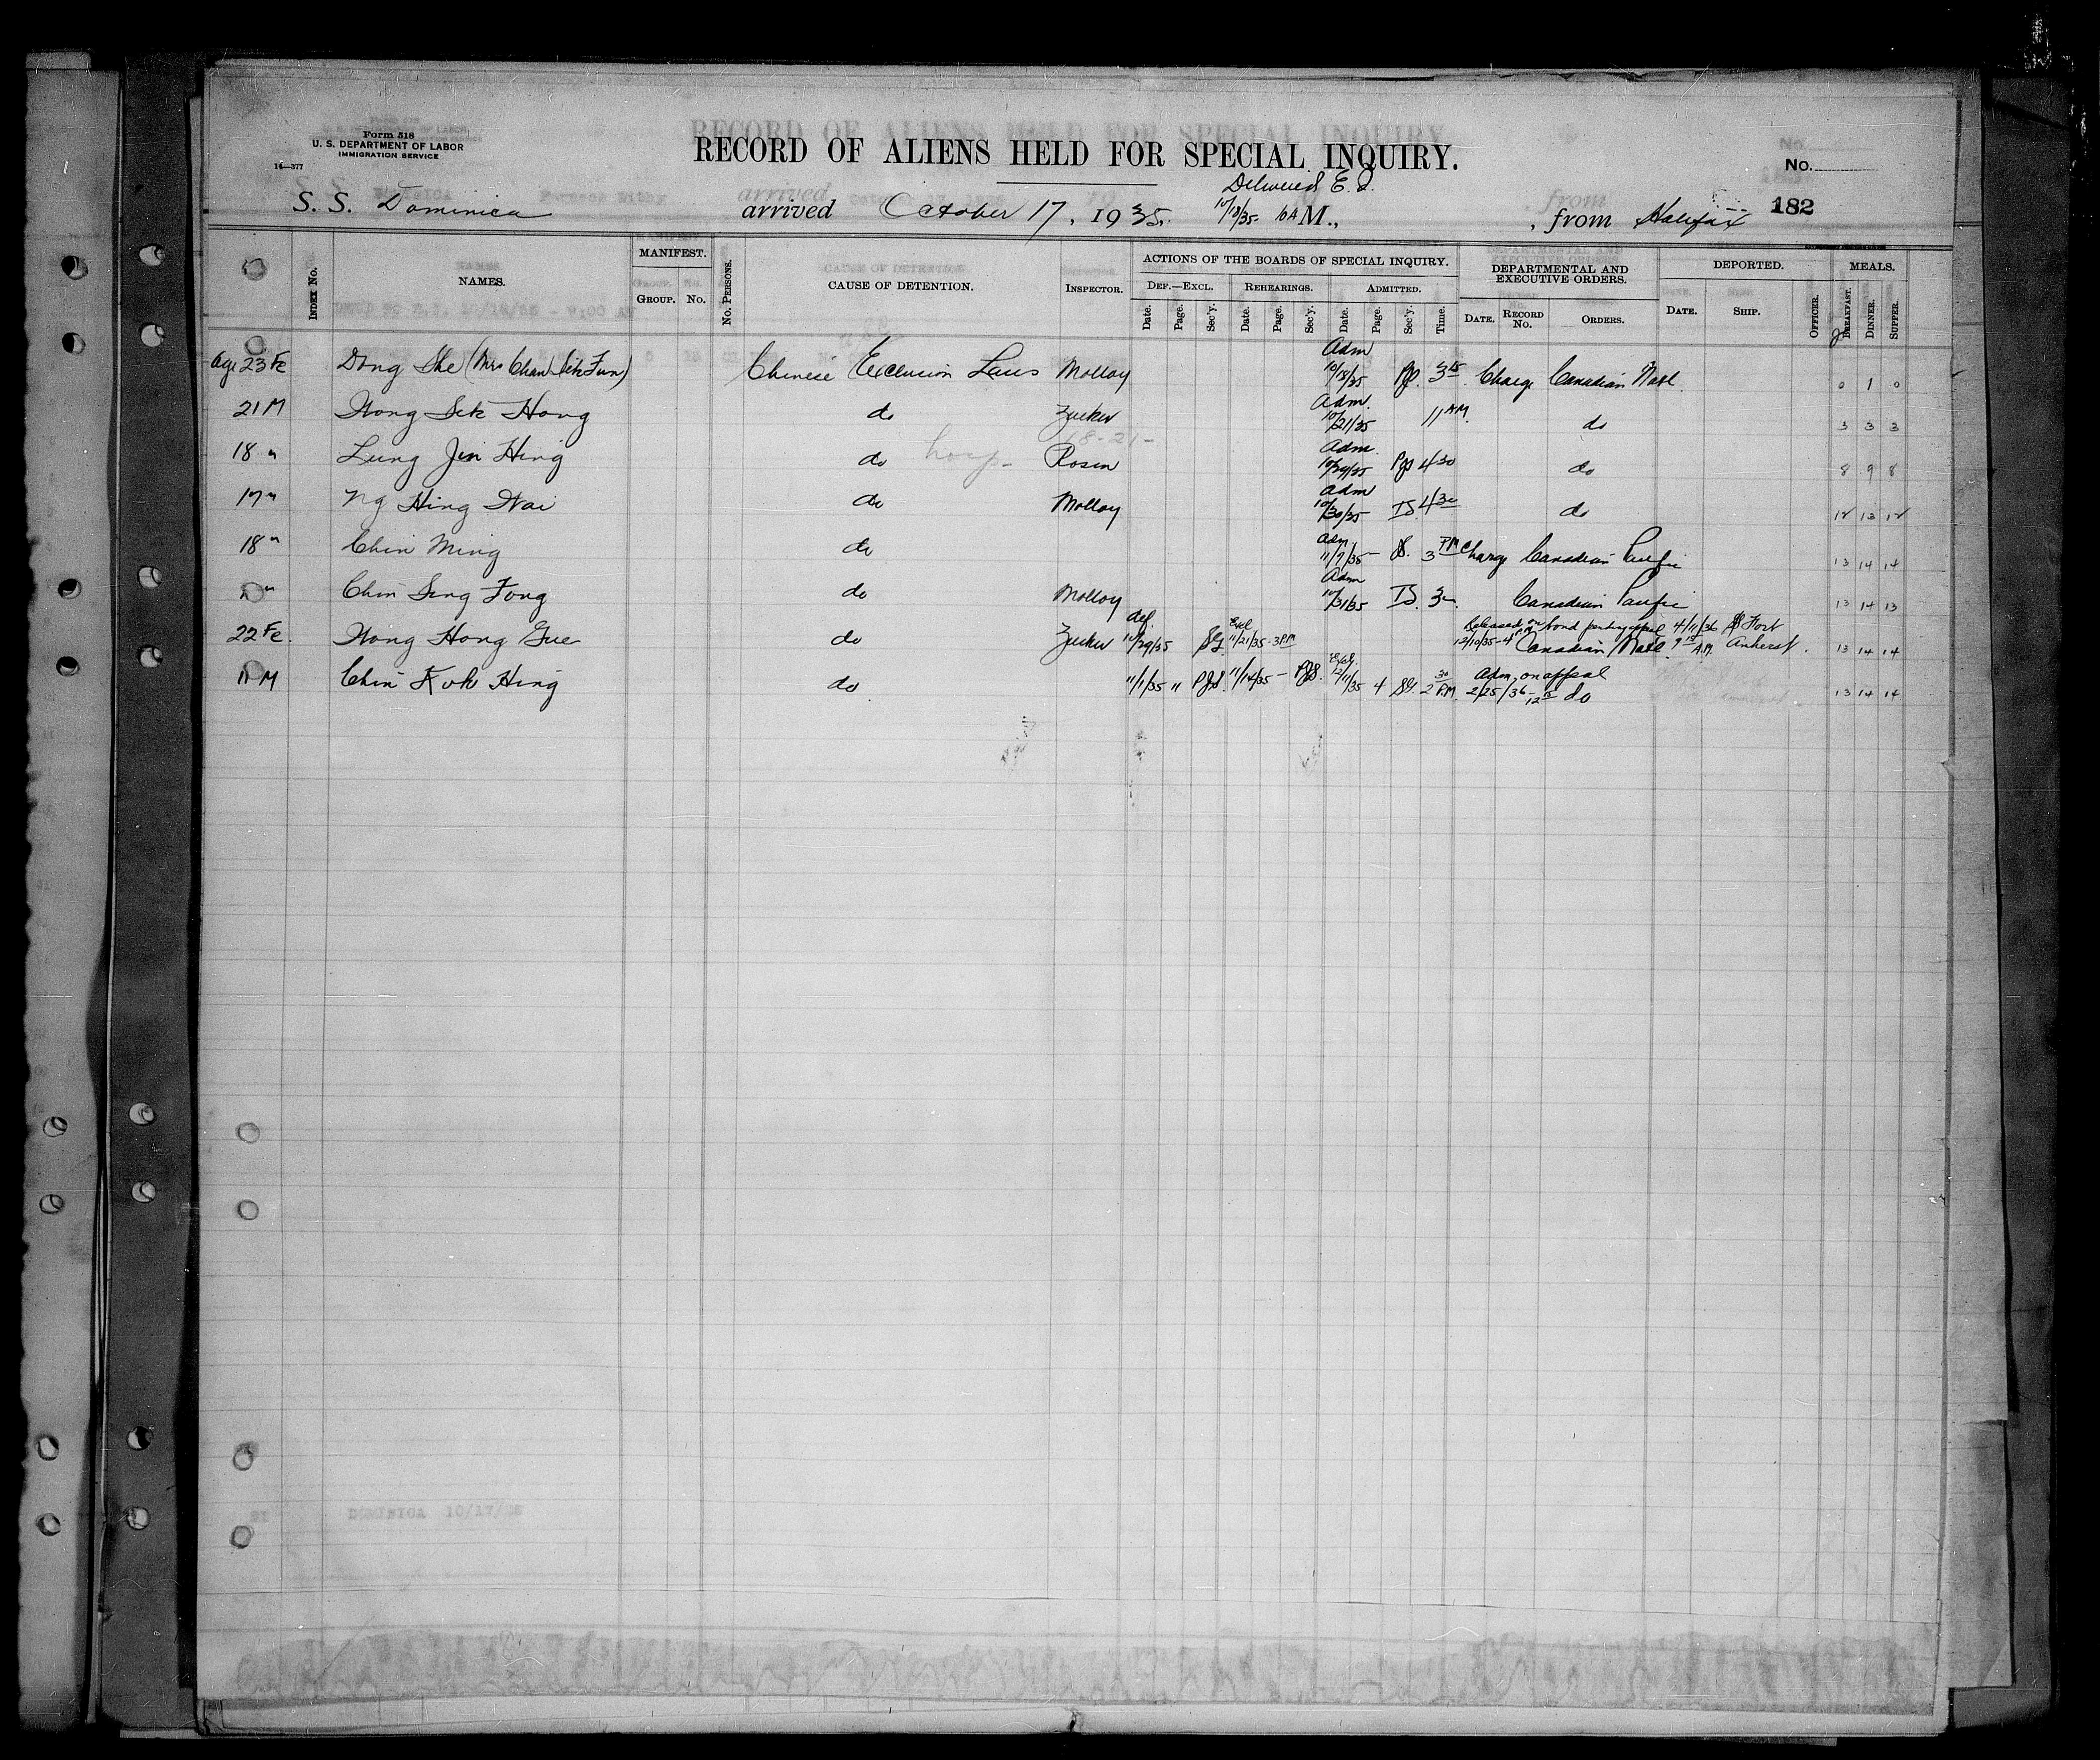 Form 518
U. S. DEPARTMENT OF LABOR
IMMIGRATION SERVICE
14—377
RECORD OF ALIENS HELD FOR SPECIAL INQUIRY.
No.
Delivered E. I.
S. S. Dominica arrived October 17, 1935. 10/18/35 10 A M., , from Halifax 182
INDEX No. NAMES. MANIFEST. GROUP. No. No. PERSONS. CAUSE OF DETENTION. INSPECTOR. ACTIONS OF THE BOARDS OF SPECIAL INQUIRY. DEF.—EXCL. Date. Page. Sec'y. REHEARINGS. Date. Page. Sec'y. ADMITTED. Date. Page. Sec'y. Time. DEPARTMENTAL AND EXECUTIVE ORDERS. DATE. RECORD No. ORDERS. DEPORTED. DATE. SHIP. OFFICER. MEALS. BREAKFAST. DINNER. SUPPER.
Age 23 Fe Dong She (Mrs Chan Fun) Chinese Exclusion Laws Molloy Adm 10/18/35 3 15 Charge Canadian Natl. 0 1 0
21 M Wong Sek Hong do Zucker Adm. 10/21/35 11 AM. do 3 3 3
18 " Lung Jin Hing do hosp - Rosen 18-21- Adm. 10/29/35 4 30 do 8 9 8
17 " Ng Hing Wai do Molloy Adm 10/30/35 IS. 4 30 do 12 13 12
18 " Chin Ming do Adm 11/7/35 - S. 3 PM Charge Canadian Pacific 13 14 14
" Chin Sing Fong do Molloy Adm 10/31/35 IS. 3 Canadian Pacific 13 14 13
22 Fe. Wong Hong Gue do Zucker def. 10/29/35 SG. Excl 11/21/35 - 3 PM Released on bond pending appeal 12/10/35 - 4 PM Canadian Natl. 4/11/36 9 15 A.M. SS Fort Amherst. 13 14 14
11 M Chin Kok Hing do 11/1/35 " PJS. 11/14/35 - PJS. Excl. 12/11/35 4 SG. 2 30 P.M. Adm. on appeal 2/25/36 - 12 15 do 13 14 14
DOMINICA 10/17/35